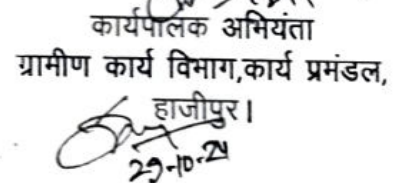 कार्यपालक अभियंता
ग्रामीण कार्य विभाग,कार्य प्रमंडल,
हाजीपुर।
29-10-24